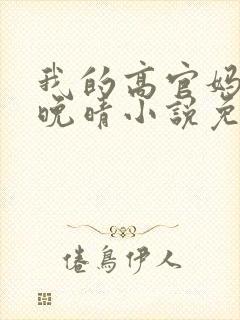 我的高官妈
晚晴小说免
倦鸟伊人